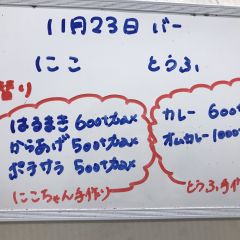 11月23日 バー
にこ とうふ
替り
はるまき 600tax
からあげ 500tax
ポテサラ 500tax
にこちゃん手作り
カレー 600t
オムカレー 1000
とうふ手作